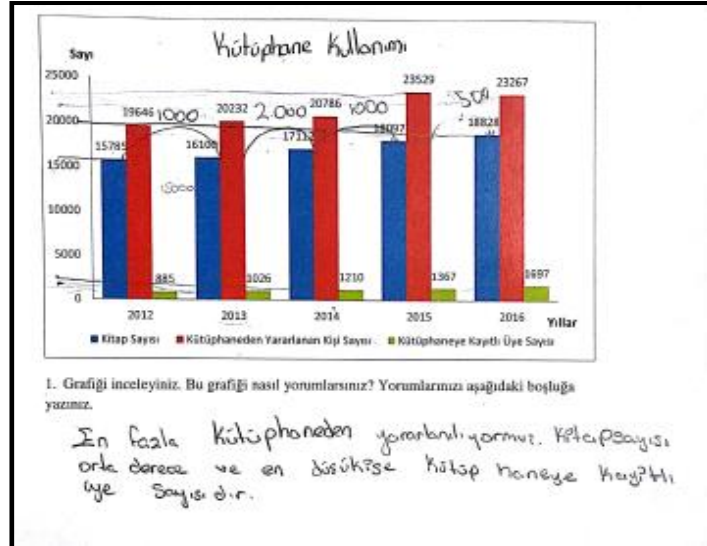 Kütüphane Kullanımı
Sayı
25000
20000
15000
10000
5000
0
15785 19646 885
1000
20232 1026
2.000
20786 1210
1000
23529 1367
500
18828 23267 1697
2012 2013 2014 2015 2016 Yıllar
Kitap Sayısı Kütüphaneden Yararlanan Kişi Sayısı Kütüphaneye Kayıtlı Üye Sayısı
1. Grafiği inceleyiniz. Bu grafiği nasıl yorumlarsınız? Yorumlarınızı aşağıdaki boşluğa
yazınız.
En fazla kütüphaneden yararlanılıyormuş. Kitap sayısı
orta derece ve en düşük ise kütüp haneye kayıtlı
üye sayısıdır.